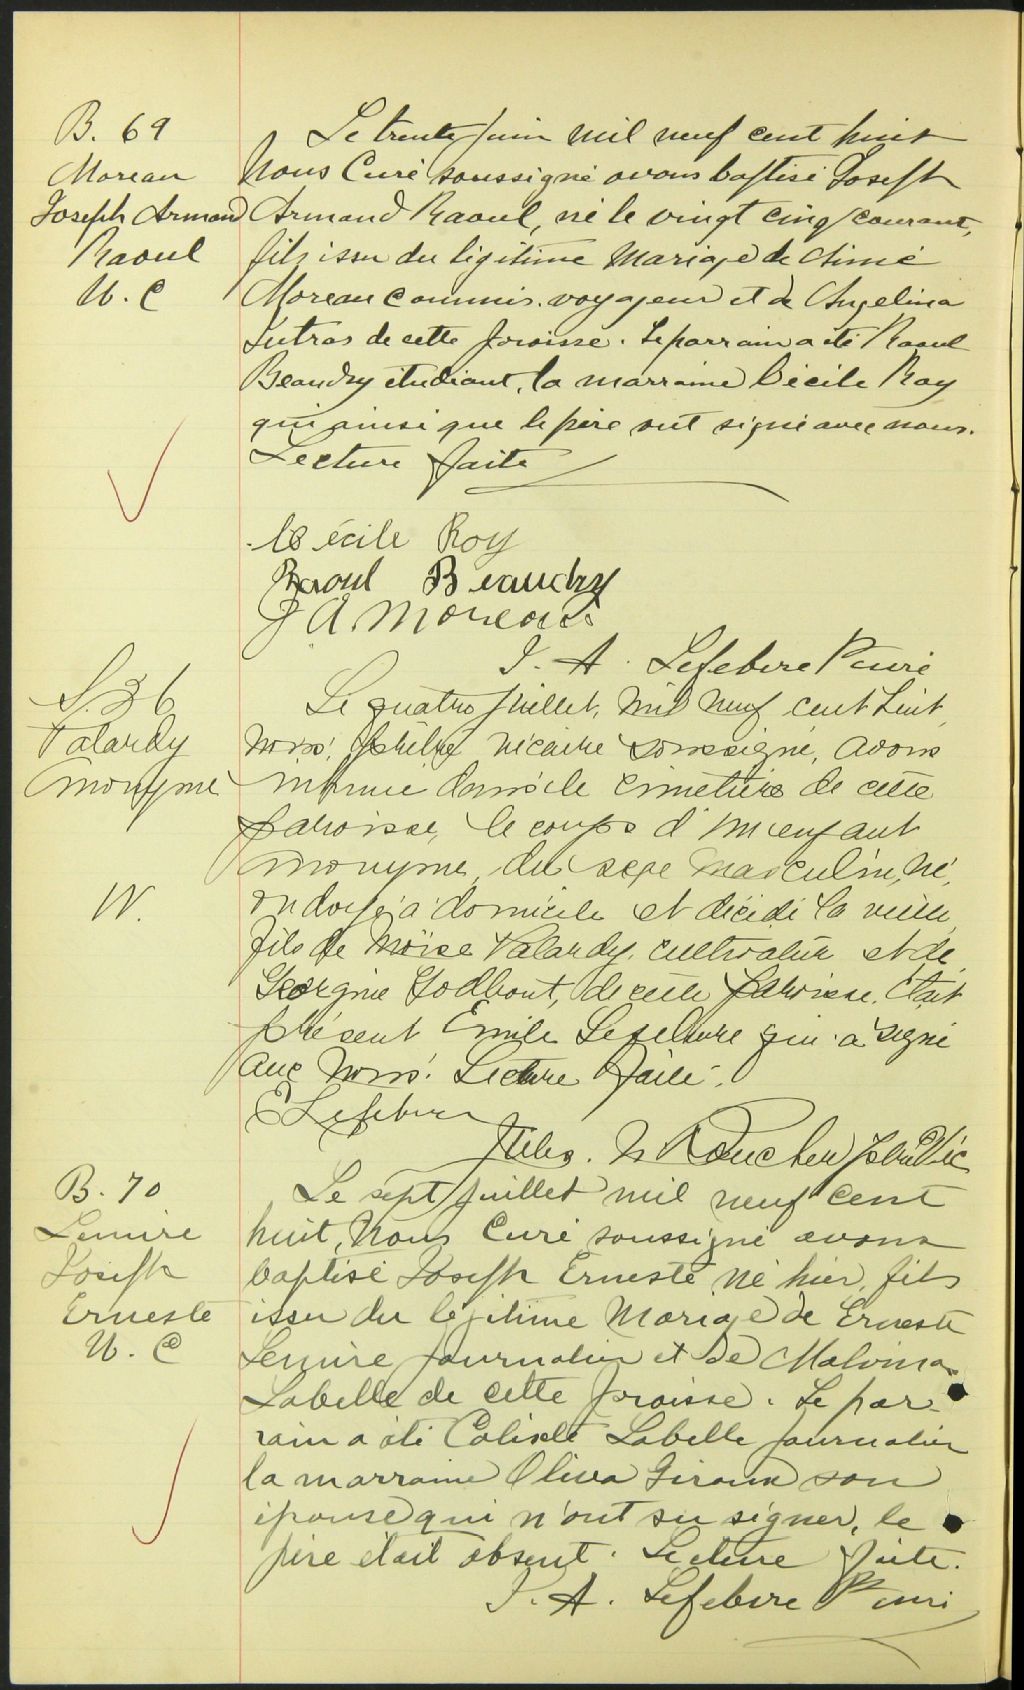 B. 69
Moreau
Joseph Armand
Raoul
U. C
Le trente juin mil neuf cent huit
Nous Curé soussigné avons baptisé Joseph
Armand Raoul, né le vingt cinq courant,
fils issu du légitime mariage de Aimé
Moreau commis-voyageur et de Angelina
Jutras de cette paroisse. Le parrain a été Raoul
Beaudry étudiant, la marraine Cécile Roy
qui ainsi que le père ont signé avec nous.
Lecture faite
Cécile Roy
Raoul Beaudry
J A. Moreau
J. A. Lefebvre Ptre curé
S. 36
Valardy
Anonyme
N.
Le quatre juillet, mil neuf cent huit,
nous, prêtre vicaire soussigné, avons
inhumé dans le cimetière de cette
paroisse, le corps d'un enfant
anonyme, du sexe masculin, né,
ondoyé à domicile et décédé la veille,
fils de Moïse Valardy, cultivateur et de
Georgine Godbout, de cette paroisse. Était
présent Emile Lefebvre qui a signé
avec nous. Lecture faite.
E Lefebvre
Jules. N Ptre Vic
B. 70
Lemire
Joseph
Erneste
U. C
Le sept juillet mil neuf cent
huit, Nous Curé soussigné avons
baptisé Joseph Erneste né hier, fils
issu du légitime mariage de Erneste
Lemire journalier et de Malvina
Labelle de cette paroisse. Le par-
rain a été Calixte Labelle journalier
la marraine Oliva Giroux son
épouse qui n'ont su signer, le
père était absent. Lecture faite.
J. A. Lefebvre Ptre curé